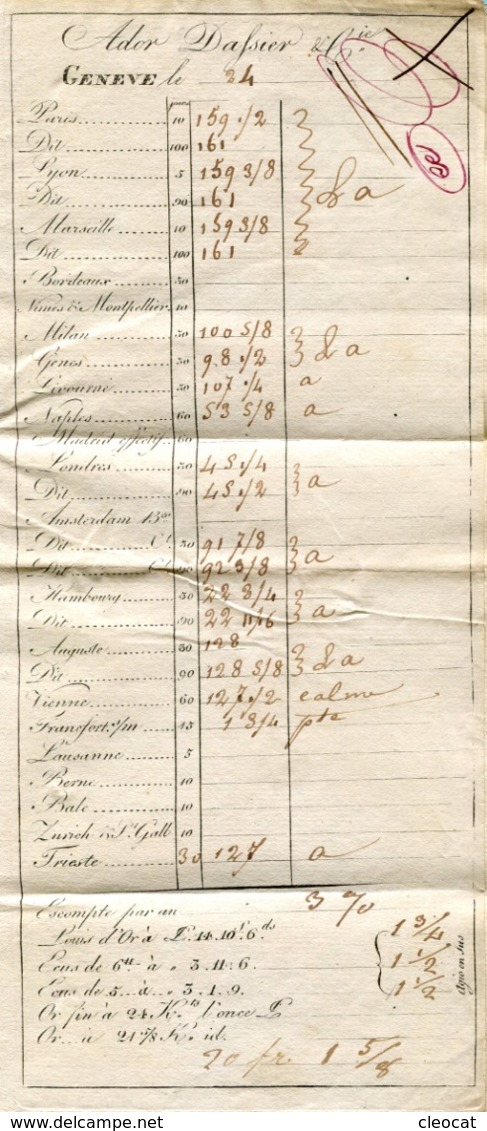 Ador Dassier & Cie
GENEVE le 24
jours
Paris 10 159 1/2
Dit 100 161
Lyon 5 159 3/8
Dit 90 161 & a
Marseille 10 159 3/8
Dit 100 161
Bordeaux 30
Nimes & Montpellier 10
Milan 30 100 5/8
Gênes 30 98 1/2 & a
Livourne 30 107 1/4 a
Naples 60 53 5/8 a
Madrid effectif 60
Londres 30 45 1/4
Dit 90 45 1/2 a
Amsterdam Bco
Dit Ct 30 91 7/8
Dit Ct 90 92 3/8 a
Hambourg 30 22 3/4
Dit 90 22 11/16 a
Auguste 30 128
Dit 90 128 5/8 & a
Vienne 60 127 1/2 calme
Francfort s/m 45 1 3/4 pte
Lausanne 5
Berne 10
Bale 10
Zurich & St Gall 10
Trieste 30 127 a
Escompte par an 3 %
Louis d'Or à L. 14.10s.6ds 1 3/4
Ecus de 6tt à „ 3.11.6. 1 1/2
Ecus de 5 à „ 3.1.9. 1 1/2
agio en sus
Or fin à 24 Kts l'once L
Or à 21 7/8 Kts id.
20 fr. 1 5/8
cleocat